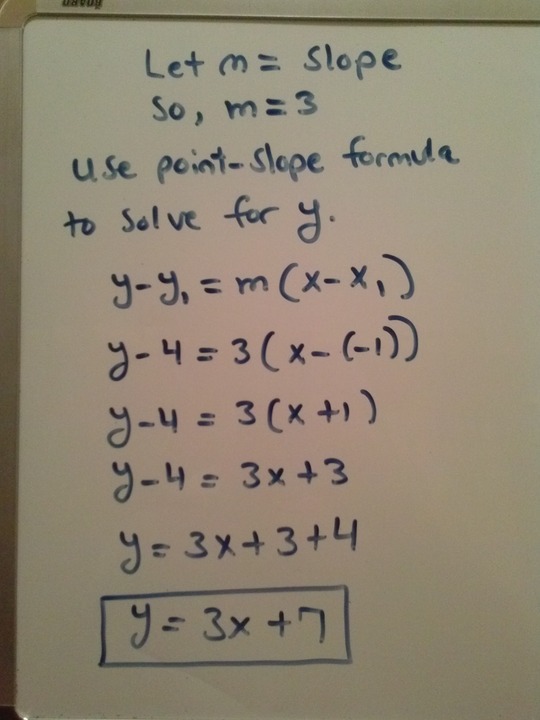 Let m = slope
so, m = 3
use point-slope formula
to solve for y.
y - y₁ = m(x - x₁)
y - 4 = 3(x - (-1))
y - 4 = 3(x + 1)
y - 4 = 3x + 3
y = 3x + 3 + 4
y = 3x + 7